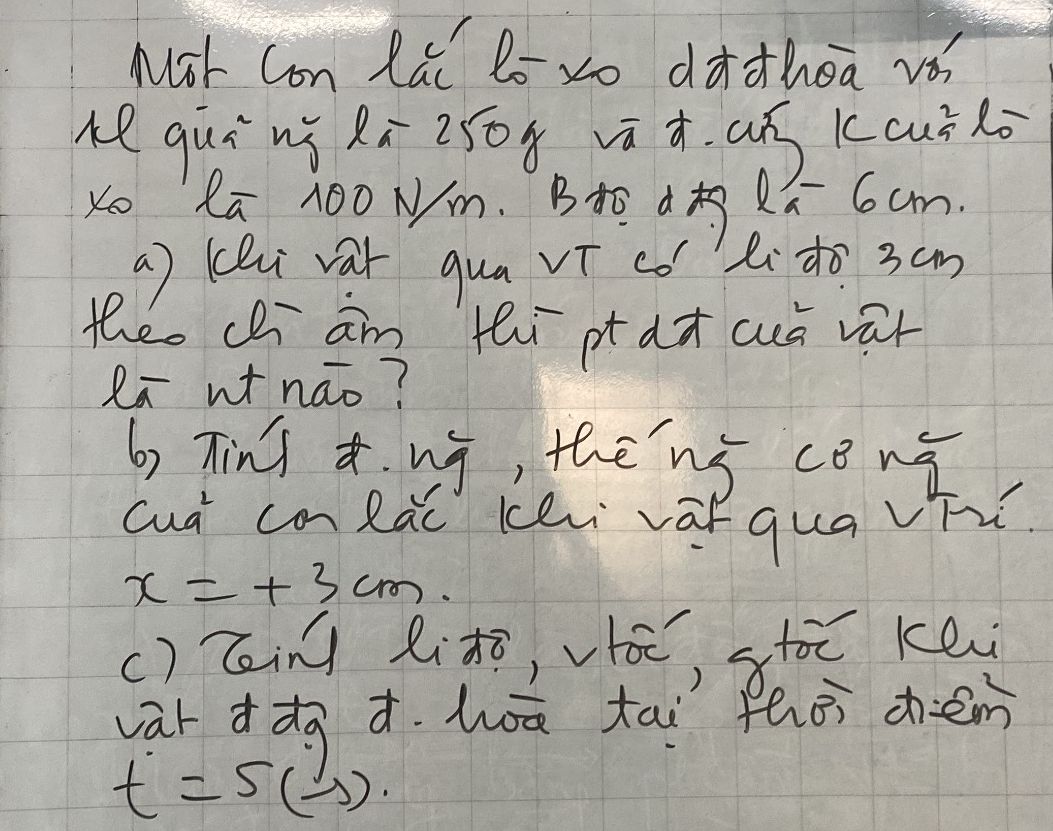 Một con lắc lò xo dđđhoà với
kl quả nặ là 250g và đ.cứg K cuả lò
xo là 100 N/m. B độ d độg là 6cm.
a) Khi vật qua VT có li độ 3cm
theo ch âm thì pt dđ cuả vật
là nt nào?
b) Tính đ.ng, thế ng cơ ng
cuả con lắc khi vật qua vTrí.
x = + 3 cm.
c) Tính li độ, vtốc, gtốc khi
vật d độg đ. hoà tại thời điểm
t = 5 (s).